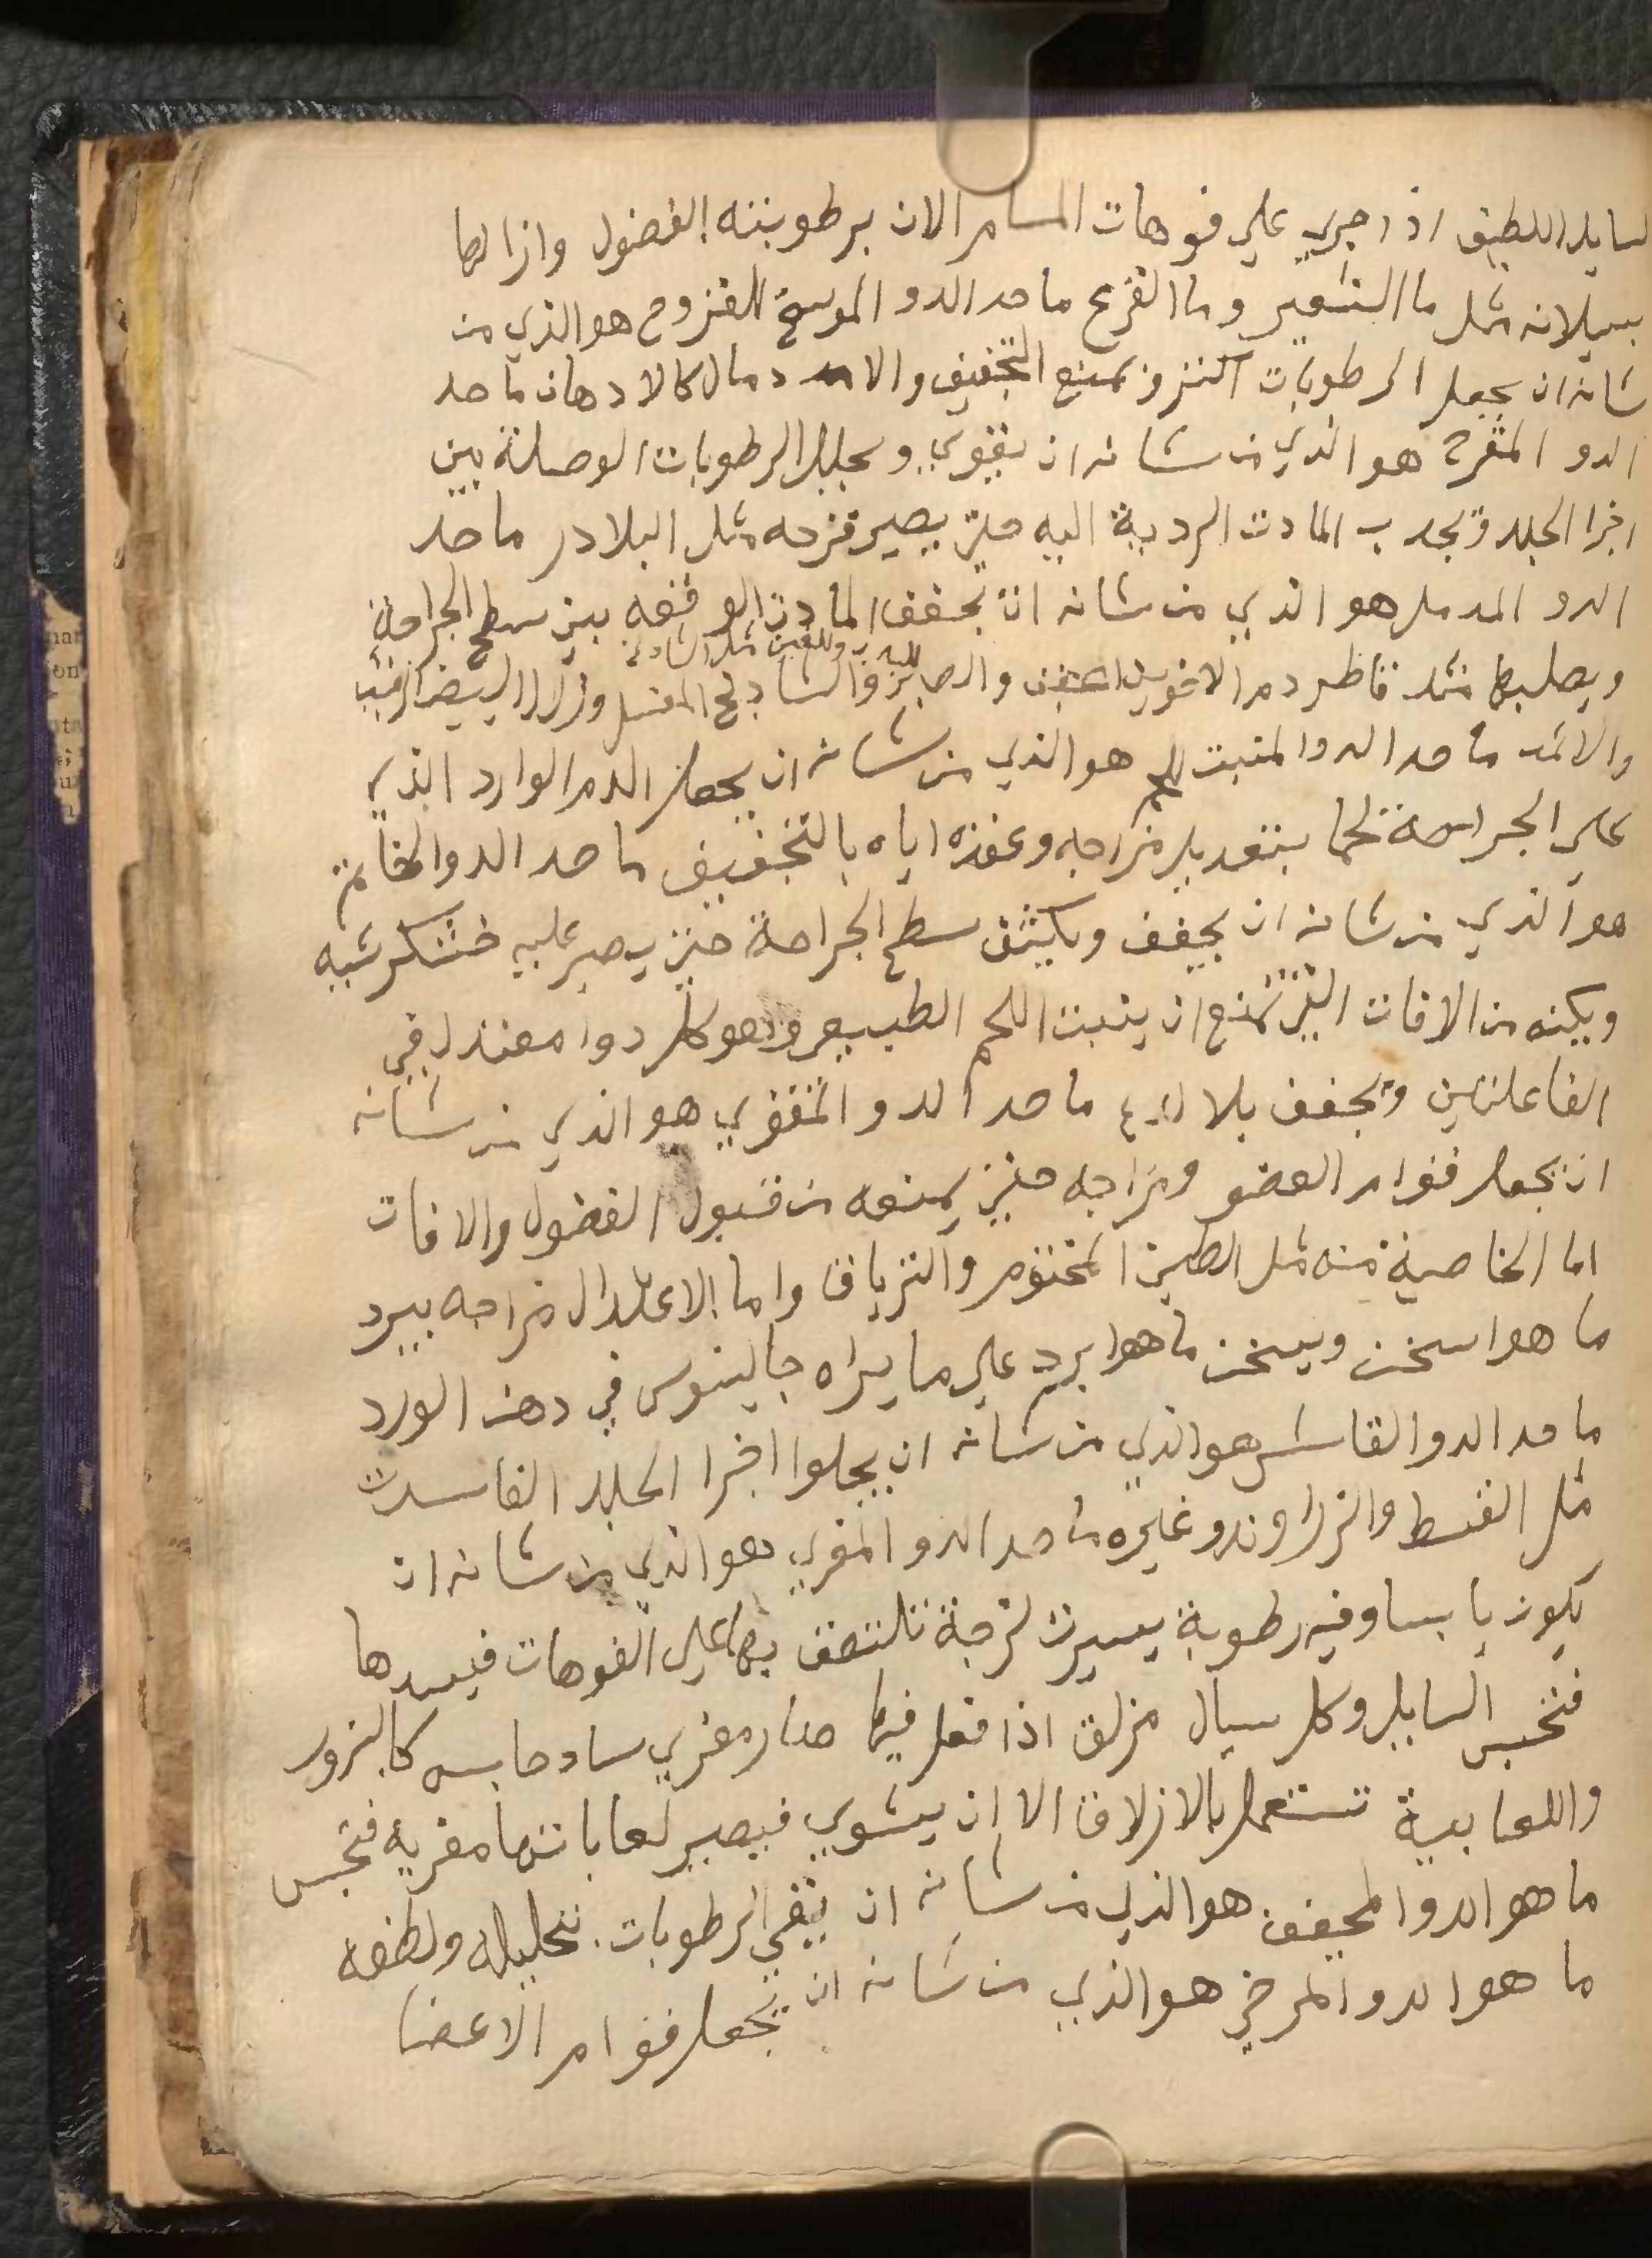 السايلا اللطيق اذا جري علي فوهات المسام الان برطوبته الفضول وازالها
بسيلانه مثل ما الشعير وما القرع ما حد الدو الموسخ للقزوح هو الذي من
شانه ان يجعل الرطوبات اكثر ويمنع التجفيف والا دمال كالادهان ما حد
الدو المقرح هو الذي من شانه ان يقوي ويحلل الرطوبات الوصلة بين
اجزا الجلد ويجدب المادت الردية اليه حتي يصير قزحه مثل البلادر ما حد
الدو المدمل هو الذي من شانه ان يجفف المادت الوقفه بين سطح الجراحة
ويصلبها مثل قاطر دم الاخوين والصبر والشادنج المغسل وزلال البيض
والاثمد ما حد الدو المنبت للحم هو الذي من شانه ان يجعل الدم الوارد الذي
علي الجراحة لحما بتعديل مزاجه وعقده اياه بالتخفيف ما حد الدو الخاتم
هو الذي من شانه ان يجفف ويكيثف سطح الجراحة حتي يصير عليه خشكرشيه
ويكنه من الافات التي تمنع ان ينبت اللحم الطبيعي وهو كل دوا معتدل في
الفاعلتين ويجفف بلا لدع ما حد الدو المقوي هو الذي من شانه
ان يجعل قوام العضو ومزاجه حتي يمنعه من قبول الفضول والافات
اما الخاصية منه مثل الطين المختوم والترياق واما الاعتدال مزاجه يبرد
ما هو اسخن ويسخن ما هو ابرد علي ما يراه جالينوس في دهن الورد
ما حد الدو القاشر هو الذي من شانه ان يجلوا اجزا الجلد الفاسدت
مثل القسط والزراوند وغيره ما حد الدو المغري هو الذي من شانه ان
يكون يابسا وفيه رطوبة يسيرت لزجة تلتصق بها علي الفوهات فيسدها
فتحبس السايل وكل سيال مزلق اذا فعل فيها صار مغري ساد حابس كالبزور
واللعابية تستعمل بالازلاق الا ان يشوي فيصير لعاباتها مغرية فتحبس
ما هو الدو المجفف هو الذي من شانه ان ينقي الرطوبات بتحليله ولطفه
ما هو الدو المرخي هو الذي من شانه ان يجعل قوام الاعضا